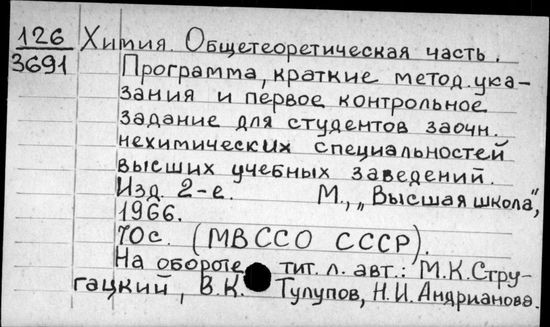 126
3691
Химия. Общетеоретическая часть.
Программа, краткие метод. ука-
зания и первое контрольное
задание для студентов заочн.
нехимических специальностей
высших учебных заведений.
Изд. 2-е. М., „Высшая школа",
1966.
70с. (МВССО СССР).
На обороте тит. л. авт.: М.К.Стру-
гацкий, В.К. Тулупов, Н.И.Андрианова.